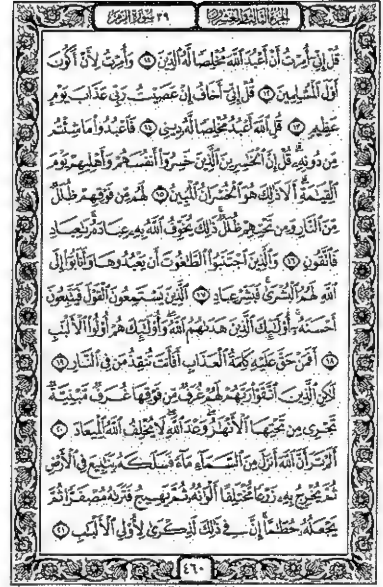 الجزء الثالث والعشرون ٣٩ سورة الزمر
قُلْ إِنِّي أُمِرْتُ أَنْ أَعْبُدَ ٱللَّهَ مُخْلِصًا لَّهُ ٱلدِّينَ ١١ وَأُمِرْتُ لِأَنْ أَكُونَ
أَوَّلَ ٱلْمُسْلِمِينَ ١٢ قُلْ إِنِّي أَخَافُ إِنْ عَصَيْتُ رَبِّي عَذَابَ يَوْمٍ
عَظِيمٍ ١٣ قُلِ ٱللَّهَ أَعْبُدُ مُخْلِصًا لَّهُ دِينِي ١٤ فَٱعْبُدُوا۟ مَا شِئْتُم
مِّن دُونِهِۦ قُلْ إِنَّ ٱلْخَٰسِرِينَ ٱلَّذِينَ خَسِرُوٓا۟ أَنفُسَهُمْ وَأَهْلِيهِمْ يَوْمَ
ٱلْقِيَٰمَةِ أَلَا ذَٰلِكَ هُوَ ٱلْخُسْرَانُ ٱلْمُبِينُ ١٥ لَهُم مِّن فَوْقِهِمْ ظُلَلٌ
مِّنَ ٱلنَّارِ وَمِن تَحْتِهِمْ ظُلَلٌ ذَٰلِكَ يُخَوِّفُ ٱللَّهُ بِهِۦ عِبَادَهُۥ يَٰعِبَادِ
فَٱتَّقُونِ ١٦ وَٱلَّذِينَ ٱجْتَنَبُوا۟ ٱلطَّٰغُوتَ أَن يَعْبُدُوهَا وَأَنَابُوٓا۟ إِلَى
ٱللَّهِ لَهُمُ ٱلْبُشْرَىٰ فَبَشِّرْ عِبَادِ ١٧ ٱلَّذِينَ يَسْتَمِعُونَ ٱلْقَوْلَ فَيَتَّبِعُونَ
أَحْسَنَهُۥٓ أُو۟لَٰٓئِكَ ٱلَّذِينَ هَدَىٰهُمُ ٱللَّهُ وَأُو۟لَٰٓئِكَ هُمْ أُو۟لُوا۟ ٱلْأَلْبَٰبِ
١٨ أَفَمَنْ حَقَّ عَلَيْهِ كَلِمَةُ ٱلْعَذَابِ أَفَأَنتَ تُنقِذُ مَن فِي ٱلنَّارِ ١٩
لَٰكِنِ ٱلَّذِينَ ٱتَّقَوْا۟ رَبَّهُمْ لَهُمْ غُرَفٌ مِّن فَوْقِهَا غُرَفٌ مَّبْنِيَّةٌ
تَجْرِي مِن تَحْتِهَا ٱلْأَنْهَٰرُ وَعْدَ ٱللَّهِ لَا يُخْلِفُ ٱللَّهُ ٱلْمِيعَادَ ٢٠
أَلَمْ تَرَ أَنَّ ٱللَّهَ أَنزَلَ مِنَ ٱلسَّمَآءِ مَآءً فَسَلَكَهُۥ يَنَٰبِيعَ فِي ٱلْأَرْضِ
ثُمَّ يُخْرِجُ بِهِۦ زَرْعًا مُّخْتَلِفًا أَلْوَٰنُهُۥ ثُمَّ يَهِيجُ فَتَرَىٰهُ مُصْفَرًّا ثُمَّ
يَجْعَلُهُۥ حُطَٰمًا إِنَّ فِي ذَٰلِكَ لَذِكْرَىٰ لِأُو۟لِي ٱلْأَلْبَٰبِ ٢١
٤٦٠